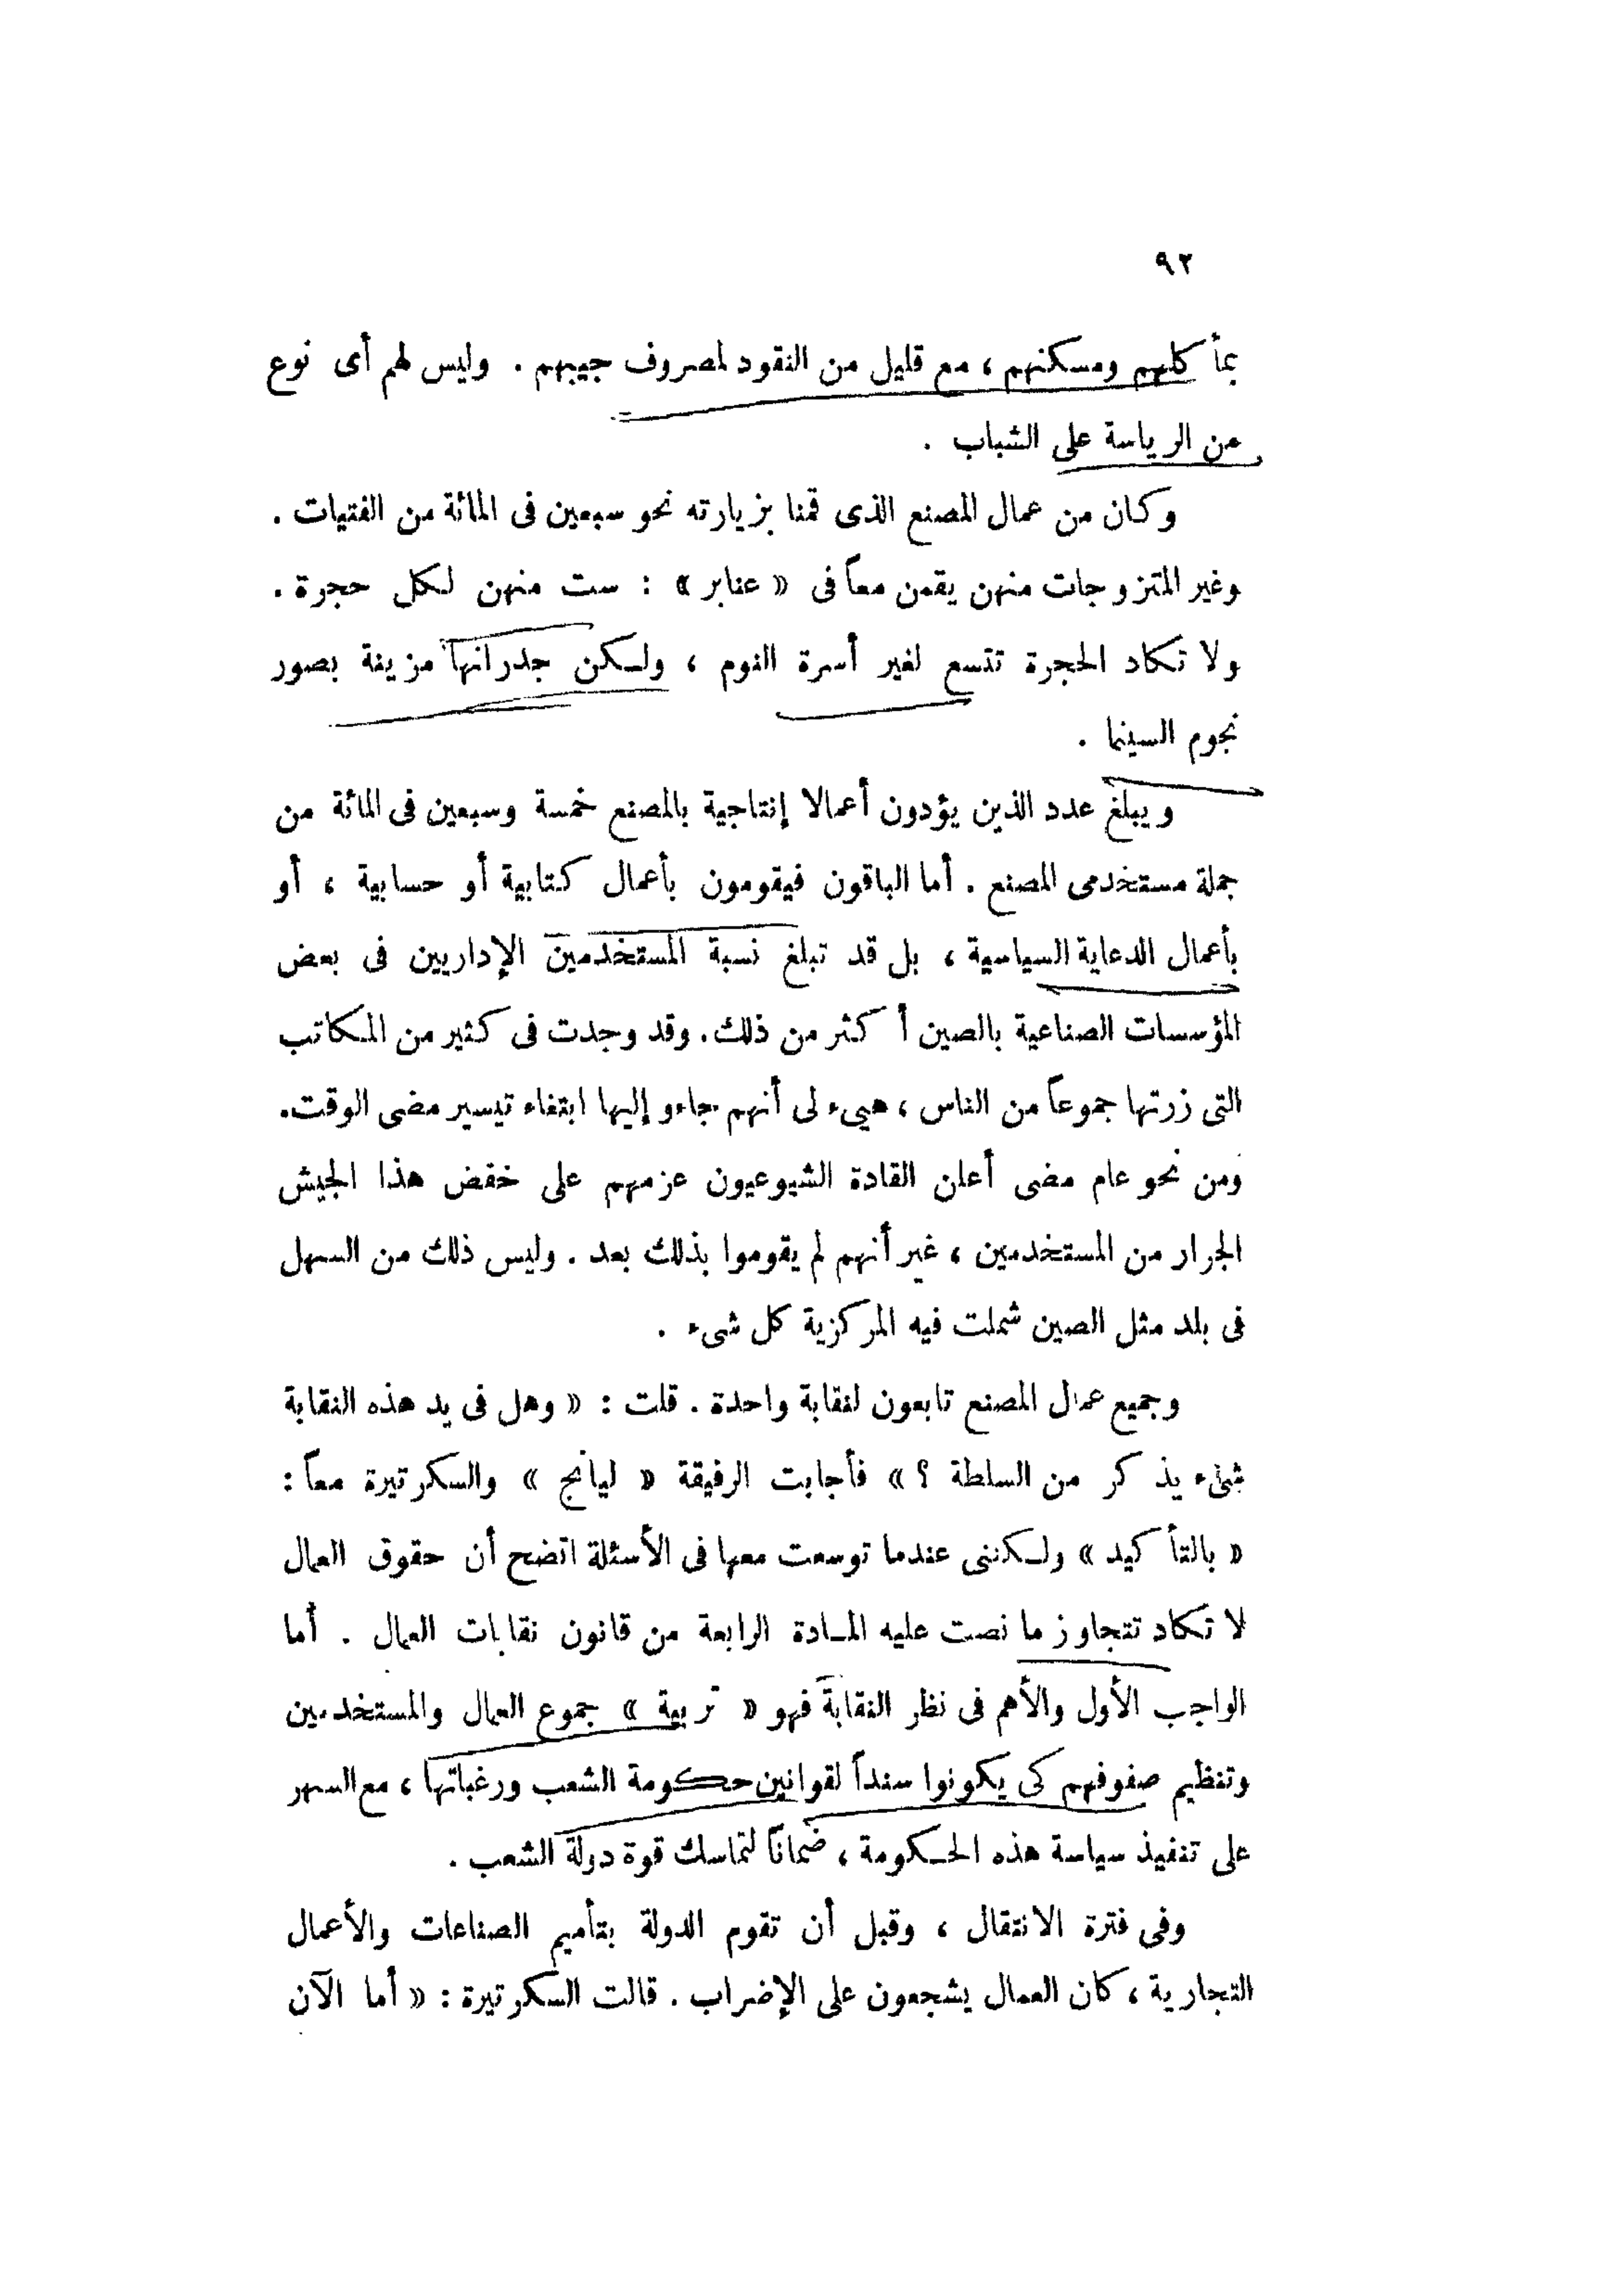 ٩٢
بمأكلهم ومسكنهم ، مع قليل من النقود لمصروف جيبهم . وليس لهم أى نوع
من الرياسة على الشباب .
وكان من عمال المصنع الذى قمنا بزيارته نحو سبعين فى المائة من الفتيات .
وغير المتزوجات منهن يقمن معاً فى « عنابر » : ست منهن لكل حجرة .
ولا تكاد الحجرة تتسع لغير أسرة النوم ، ولكن جدرانها مزينة بصور
نجوم السينما .
ويبلغ عدد الذين يؤدون أعمالا إنتاجية بالمصنع خمسة وسبعين فى المائة من
جملة مستخدمى المصنع . أما الباقون فيقومون بأعمال كتابية أو حسابية ، أو
بأعمال الدعاية السياسية ، بل قد تبلغ نسبة المستخدمين الإداريين فى بعض
المؤسسات الصناعية بالصين أكثر من ذلك . وقد وجدت فى كثير من المكاتب
التى زرتها جموعاً من الناس ، هيىء لى أنهم جاءو إليها ابتغاء تيسير مضى الوقت .
ومن نحو عام مضى أعلن القادة الشيوعيون عزمهم على خفض هذا الجيش
الجرار من المستخدمين ، غير أنهم لم يقوموا بذلك بعد . وليس ذلك من السهل
فى بلد مثل الصين شملت فيه المركزية كل شىء .
وجميع عمال المصنع تابعون لنقابة واحدة . قلت : « وهل فى يد هذه النقابة
شىء يذكر من السلطة ؟ » فأجابت الرفيقة « ليانج » والسكرتيرة معاً :
« بالتأكيد » ولكننى عندما توسعت معها فى الأسئلة اتضح أن حقوق العمال
لا تكاد تتجاوز ما نصت عليه المادة الرابعة من قانون نقابات العمال . أما
الواجب الأول والأهم فى نظر النقابة فهو « تربية » جموع العمال والمستخدمين
وتنظيم صفوفهم كى يكونوا سنداً لقوانين حكومة الشعب ورغباتها ، مع السهر
على تنفيذ سياسة هذه الحكومة ، ضماناً لتماسك قوة دولة الشعب .
وفى فترة الانتقال ، وقبل أن تقوم الدولة بتأميم الصناعات والأعمال
التجارية ، كان العمال يشجعون على الإضراب . قالت السكرتيرة : « أما الآن